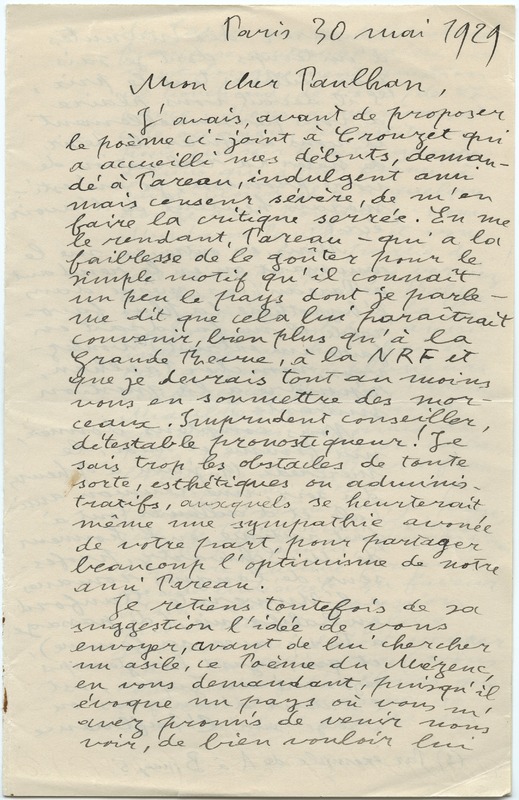 Paris 30 mai 1929
Mon cher Paulhan,
J'avais, avant de proposer
le poème ci-joint à Crouzet qui
a accueilli mes débuts, deman-
dé à Pareau, indulgent ami
mais censeur sévère, de m'en
faire la critique serrée. En me
le rendant, Pareau – qui a la
faiblesse de le goûter pour le
simple motif qu'il connaît
un peu le pays dont je parle –
me dit que cela lui paraîtrait
convenir, bien plus qu'à la
Grande Revue, à la NRF et
que je devrais tout au moins
vous en soumettre des mor-
ceaux. Imprudent conseiller,
détestable pronostiqueur! Je
sais trop les obstacles de toute
sorte, esthétiques ou adminis-
tratifs, auxquels se heurterait
même une sympathie avouée
de votre part, pour partager
beaucoup l'optimisme de notre
ami Pareau.
Je retiens toutefois de sa
suggestion l'idée de vous
envoyer, avant de lui chercher
un asile, ce Poème du Mézenc,
en vous demandant, puisqu'il
évoque un pays où vous m'
avez promis de venir nous
voir, de bien vouloir lui